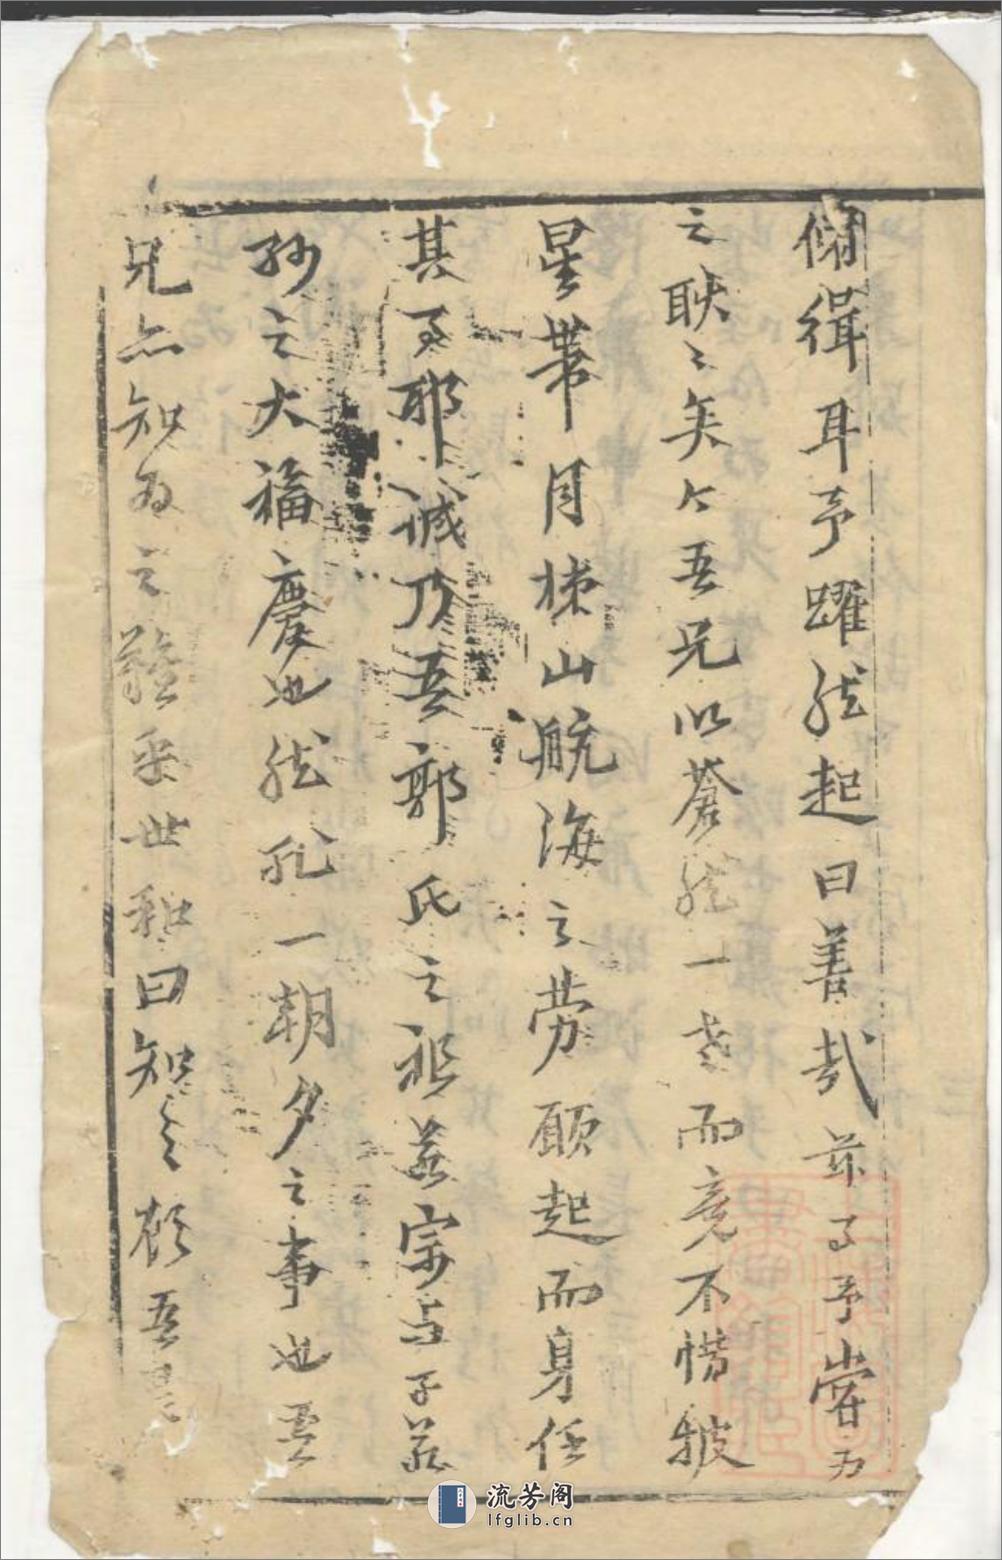 修緝耳予躍然起曰善哉茲事予嘗为
之耿〻矣今吾兄以蒼然一老而竟不惜披
星帶月梯山航海之劳願起而身任
其事耶誠乃吾郭氏之祖若宗与子若
孙之大福慶也然非一朝夕之事也吾
兄亦知为之難乎世和曰知之顧吾
流芳阁
lfglib.cn